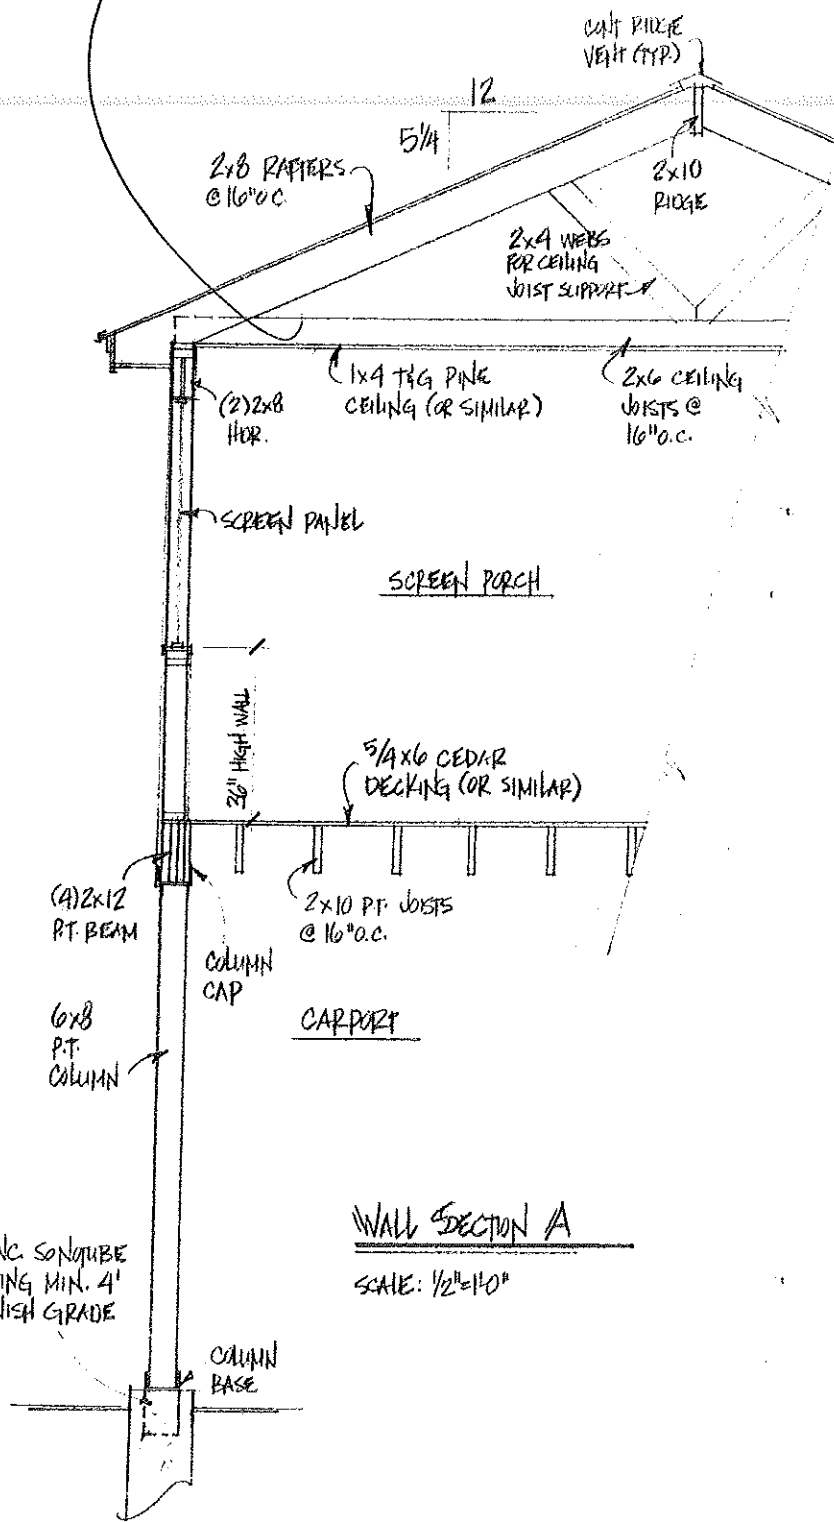 CONT RIDGE
VENT (TYP.)
12
5 1/4
2x8 RAFTERS
@ 16" O.C.
2x10
RIDGE
2x4 WEBS
FOR CEILING
JOIST SUPPORT
1x4 T&G PINE
CEILING (OR SIMILAR)
2x6 CEILING
JOISTS @
16" O.C.
(2) 2x8
HDR.
SCREEN PANEL
SCREEN PORCH
36" HIGH WALL
5/4 x 6 CEDAR
DECKING (OR SIMILAR)
(4) 2x12
P.T. BEAM
2x10 P.T. JOISTS
@ 16" O.C.
COLUMN
CAP
6x8
P.T.
COLUMN
CARPORT
WALL SECTION A
SCALE: 1/2"=1'0"
NC. SONOTUBE
ING MIN. 4'
NISH GRADE
COLUMN
BASE